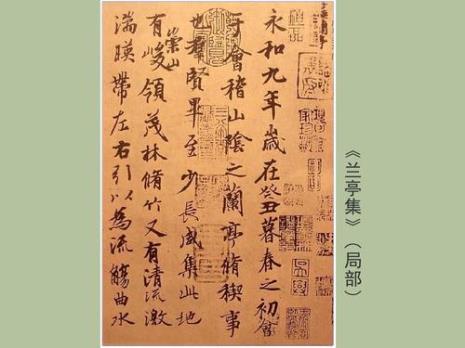 永和九年歲在癸丑暮春之初會
于會稽山陰之蘭亭脩稧事
也羣賢畢至少長咸集此地
有崇山峻領茂林脩竹又有清流激
湍暎帶左右引以為流觴曲水
《兰亭集》（局部）